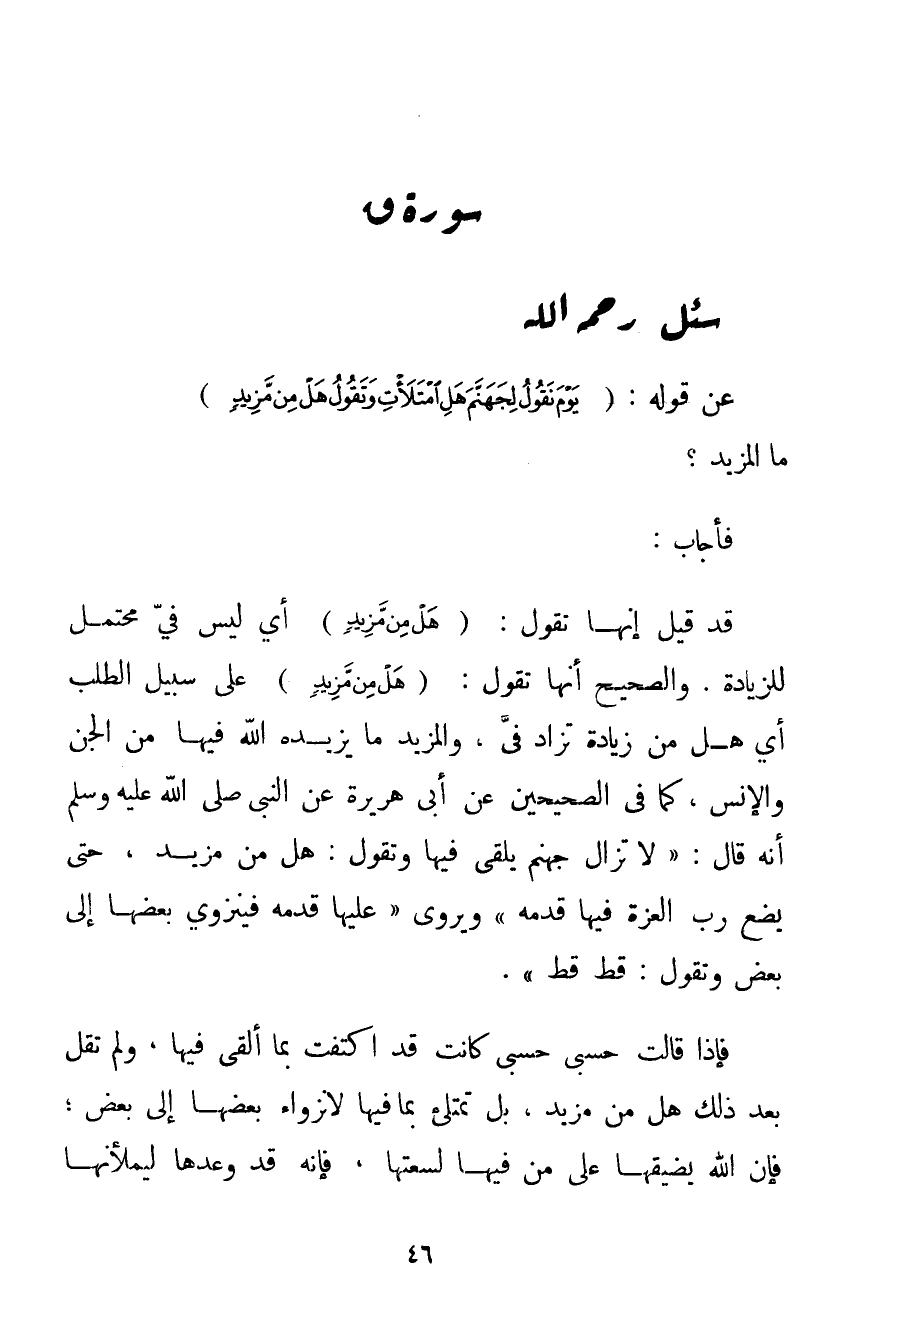 سورة ق
سئل رحمه الله
عن قوله : ( يَوْمَ نَقُولُ لِجَهَنَّمَ هَلِ ٱمْتَلَأْتِ وَتَقُولُ هَلْ مِن مَّزِيدٍ )
ما المزيد ؟
فأجاب :
قد قيل إنهـا تقول : ( هَلْ مِن مَّزِيدٍ ) أي ليس فيّ محتمـل
للزيادة . والصحيح أنها تقول : ( هَلْ مِن مَّزِيدٍ ) على سبيل الطلب
أي هـل من زيادة تزاد فىَّ ، والمزيد ما يزيـده الله فيهـا من الجن
والإنس ، كما فى الصحيحين عن أبى هريرة عن النبى صلى الله عليه وسلم
أنه قال : « لا تزال جهنم يلقى فيها وتقول : هل من مزيـد ، حتى
يضع رب العزة فيها قدمه » ويروى « عليها قدمه فينزوي بعضهـا إلى
بعض وتقول : قط قط » .
فإذا قالت حسبى حسبى كانت قد اكتفت بما ألقى فيها ، ولم تقل
بعد ذلك هل من مزيد ، بل تمتلئ بما فيها لانزواء بعضهـا إلى بعض ؛
فإن الله يضيقهـا على من فيهـا لسعتها ، فإنه قد وعدها ليملأنهـا
٤٦